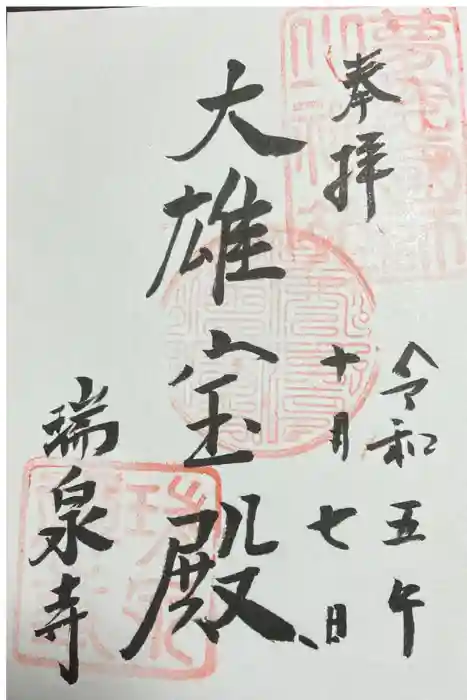 奉拝
令和五年
十月七日
大雄宝殿
瑞泉寺